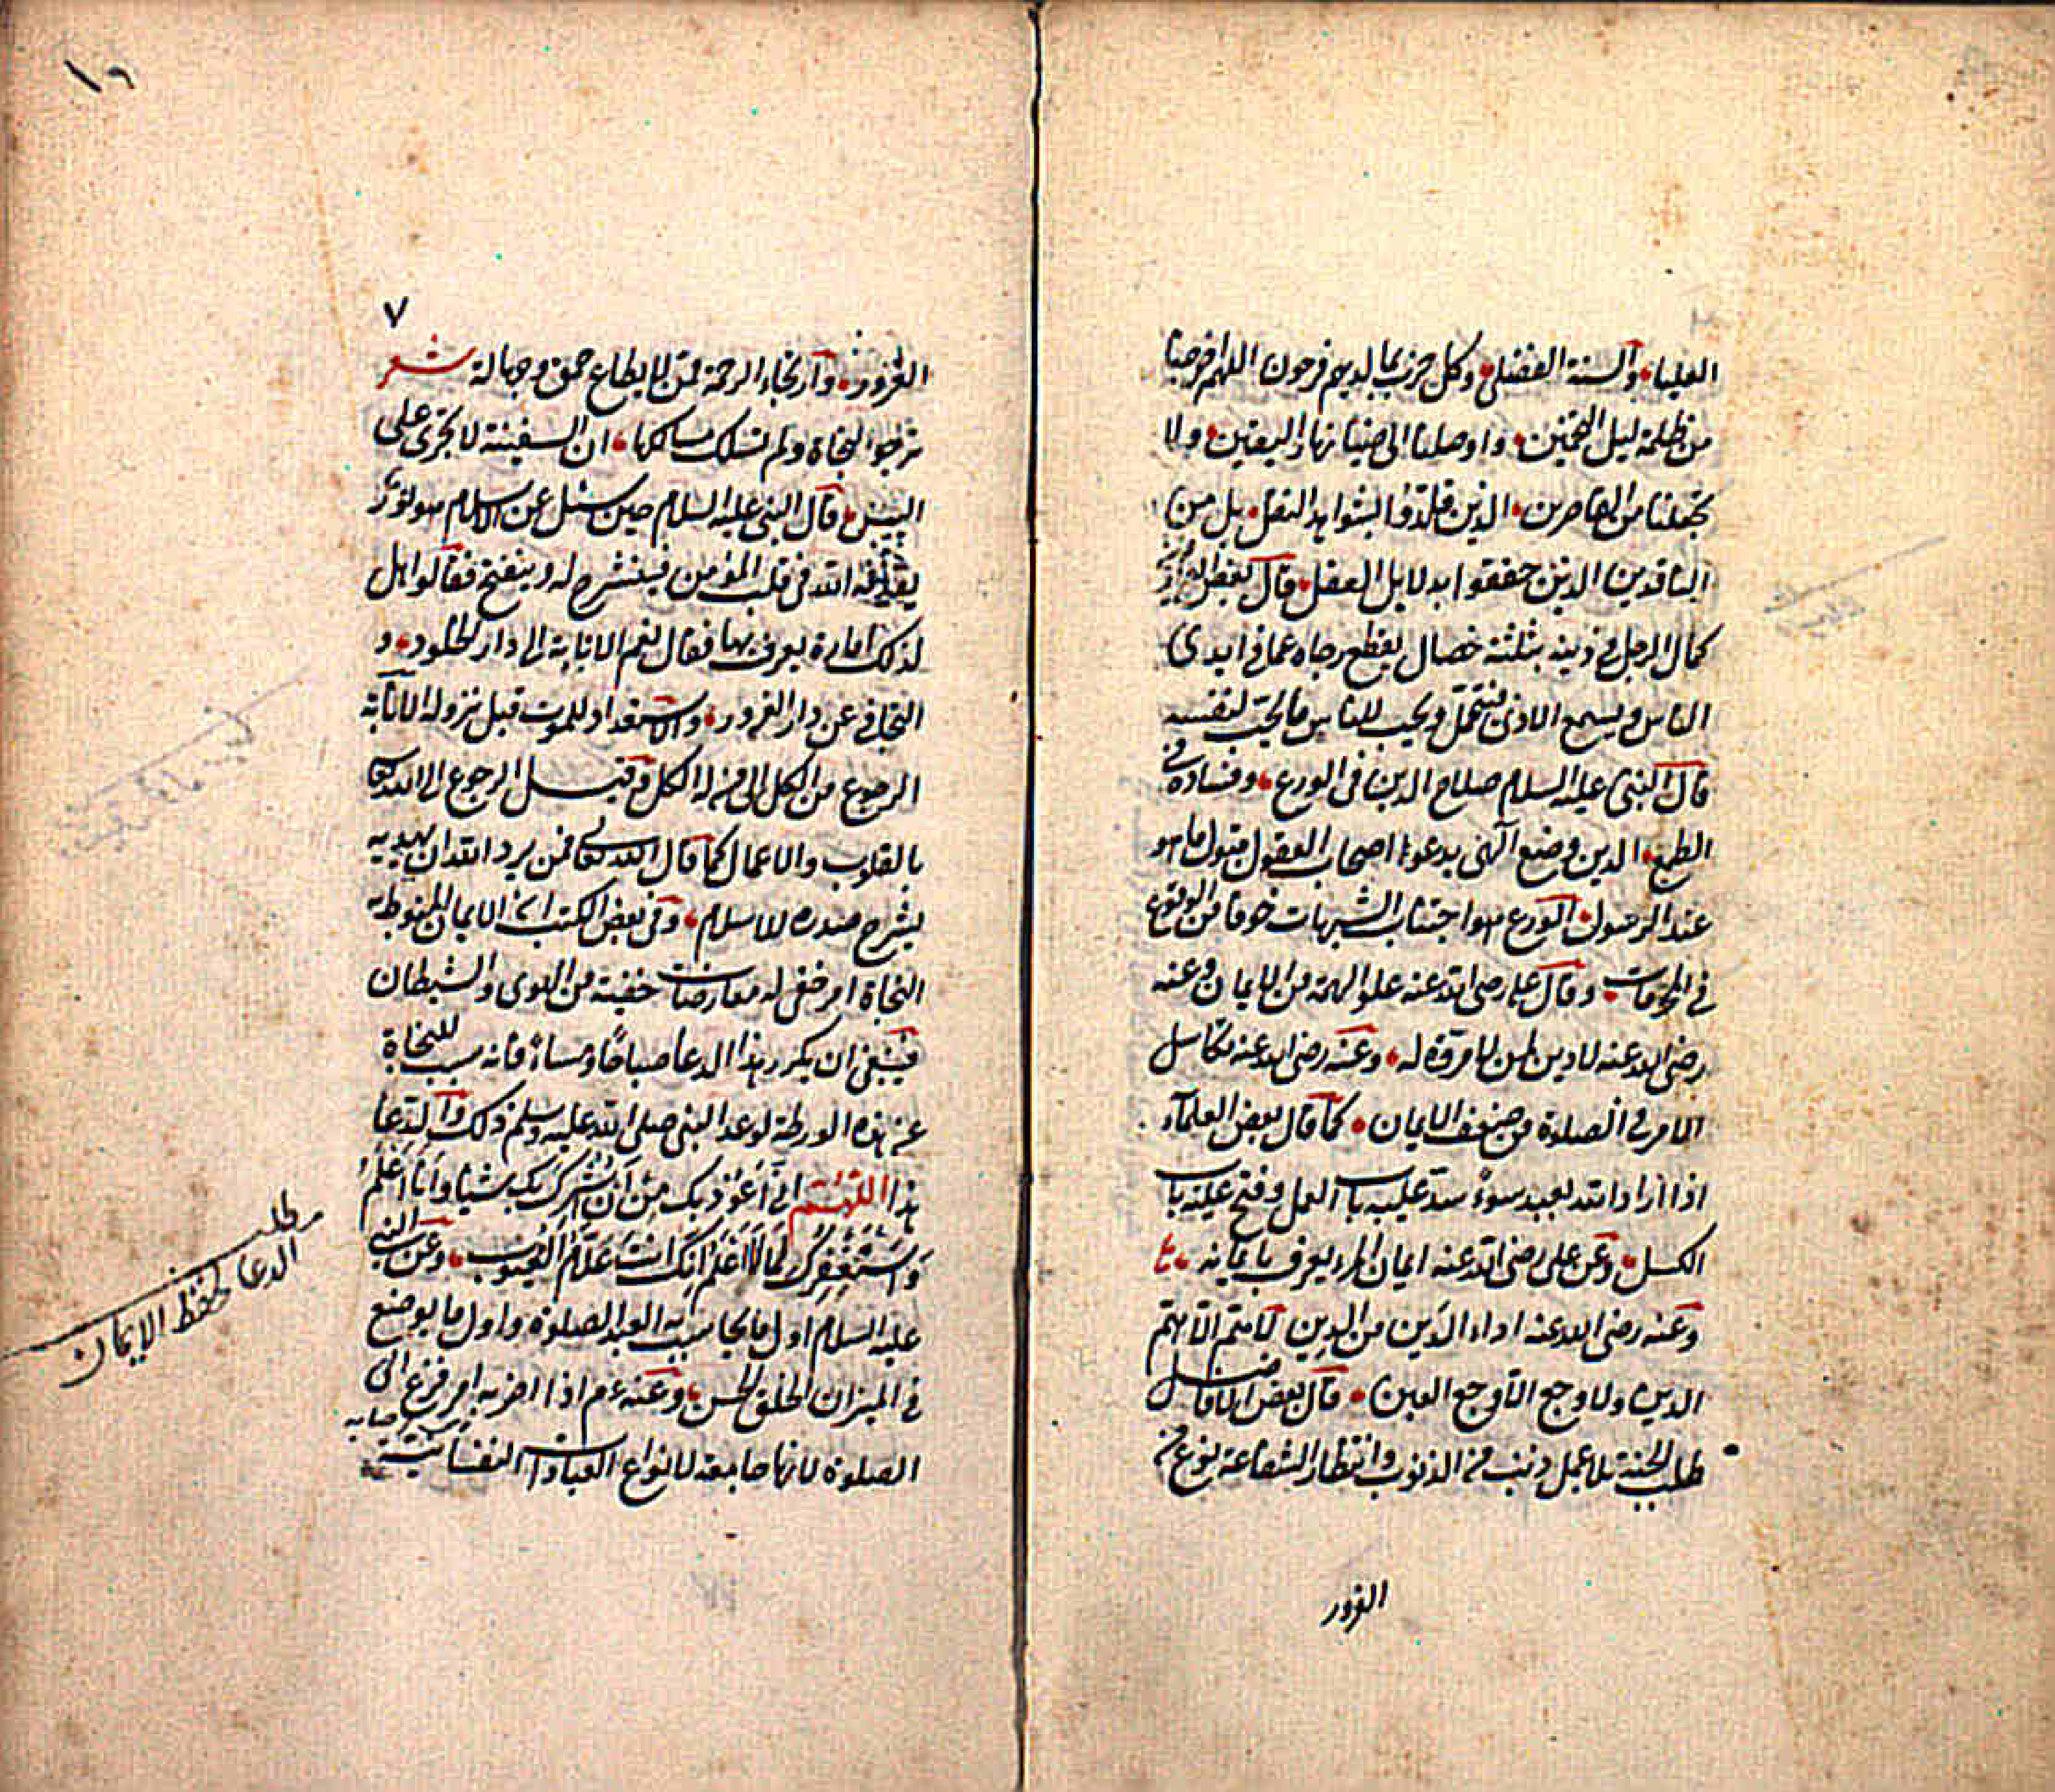 العليا والسنة الفضلى وكل حزب بما لديهم فرحون اللهم اخرجنا
من ظلمة ليل التخمين واوصلنا الى ضياء نهار اليقين ولا
تجعلنا من القاصرين الذين قلدوا لشواهد النقل بل من
الناقدين الذين حققوا بدلايل العقل قال بعض
كمال الرجل في دينه بثلثة خصال يقطع رجاه عما في ايدى
الناس ويسمع الاذى فيتحمل ويحب للناس ما يحب لنفسه
قال النبى عليه السلام صلاح الدين فى الورع وفساده فى
الطمع الدين وضع آلهى يدعوا اصحاب العقول قبول ما هو
عند الرسول الورع هو اجتناب الشبهات خوفا من الوقوع
في المحرمات وقال على رضى الله عنه علو الهمة من الايمان وعنه
رضى الله عنه لا دين لمن لا مروة له وعنه رضى الله عنه تكاسل
المرء في الصلوة من ضعف الايمان كما قال بعض العلماء
اذا اراد الله لعبد سوءً سد عليه باب العمل وفتح عليه باب
الكسل وعن على رضى الله عنه ايمان المرء يعرف بايمانه
وعنه رضى الله عنه اداء الدَين من الدِين لا هم الا هم
الدين ولا وجع الا وجع العين قال بعض الافاضل
طلب الجنة بلا عمل ذنب من الذنوب وانتظار الشفاعة نوع من
الغرور
١٠
٧
الغرور وارتجاء الرحمة ممن لا يطاع حمق وجهالة شعر
ترجوا النجاة ولم تسلك مسالكها ان السفينة لا تجرى على
اليبس قال النبى عليه السلام حين سئل عن الاسلام هو نور
يقذفه الله فى قلب المؤمن فينشرح له وينفتح فقالوا هل
لذلك امارة يعرف بها فقال نعم الانابة الى دار الخلود و
التجافى عن دار الغرور والاستعداد للموت قبل نزوله الانابة
الرجوع من الكل الى من له الكل وقيل الرجوع الى الله تعالى
بالقلوب والاعمال كما قال الله تعالى فمن يرد الله ان يهديه
يشرح صدره للاسلام وفى بعض الكتب ان الايمان المنوط به
النجاة امر خفى له معارضات خفية من الهوى والشيطان
فينبغى ان يكرر هذا الدعا صباحًا ومساءً فانه سبب للنجاة
عن هذه الورطة لوعد النبى صلى الله عليه وسلم ذلك والدعا
هذا اللهم انى اعوذ بك من ان اشرك بك شيئا وانا اعلم
واستغفرك لما لا اعلم انك انت علام الغيوب وعن النبى
عليه السلام اول ما يحاسب به العبد الصلوة واول ما يوضع
في الميزان الخلق الحسن وعنه عم اذا احزبه امر فزع الى
الصلوة لانها جامعة لانواع العبادات النفسانية
مطلب
الدعا لحفظ الايمان